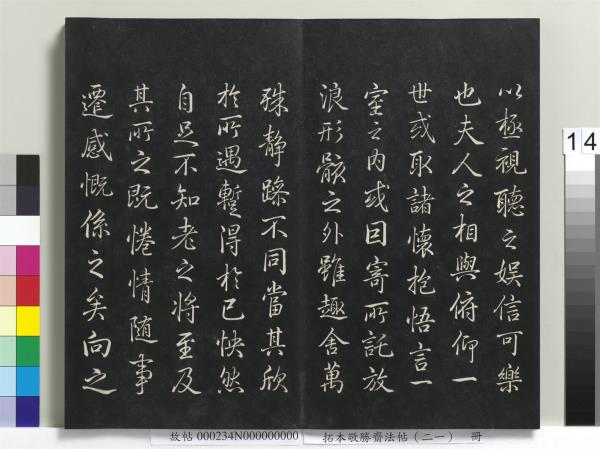 以極視聽之娛信可樂
也夫人之相與俯仰一
世或取諸懷抱悟言一
室之内或因寄所託放
浪形骸之外雖趣舍萬
殊靜躁不同當其欣
於所遇蹔得於己怏然
自足不知老之將至及
其所之既惓情隨事
遷感慨係之矣向之
14
故帖 000234N000000000 拓本敬勝齋法帖(二一) 冊